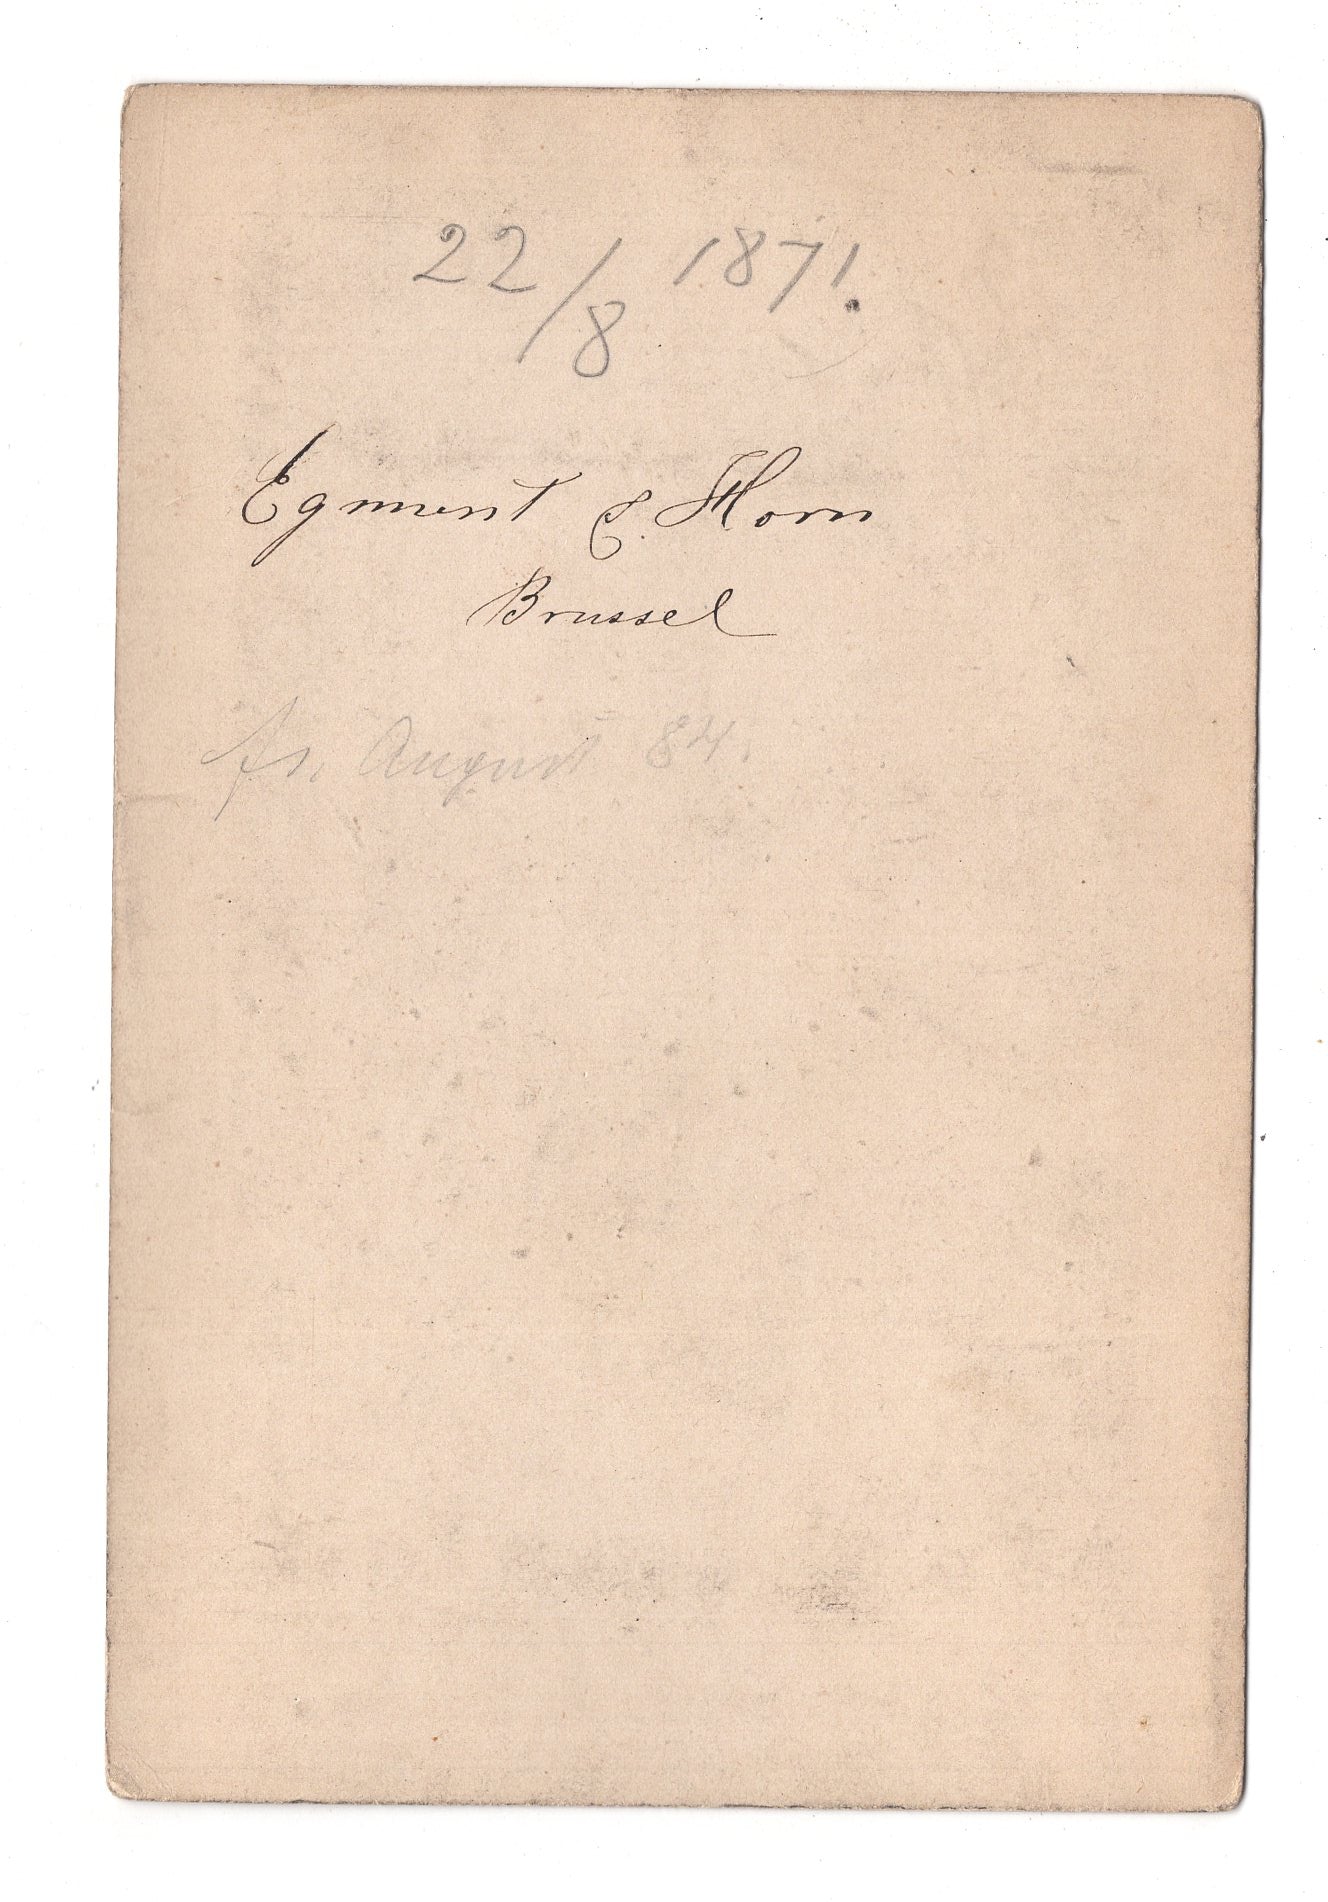 22/8 1871.
Egmont & Horn
Brussel
August 84.